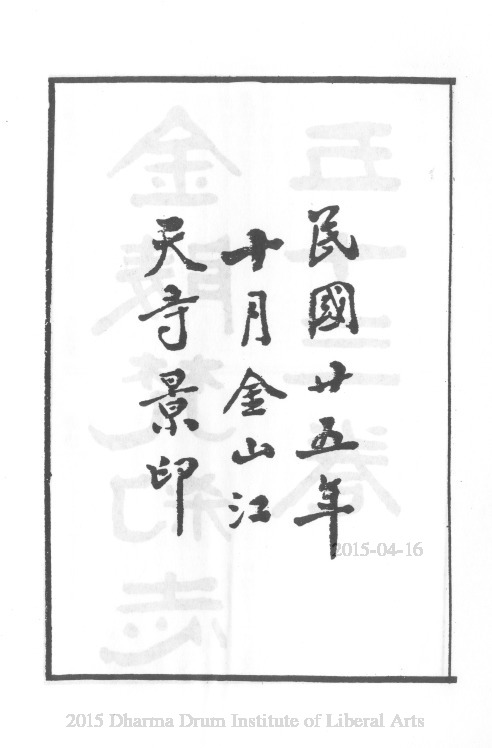 民國廿五年
十月金山江
天寺景印
2015-04-16
2015 Dharma Drum Institute of Liberal Arts